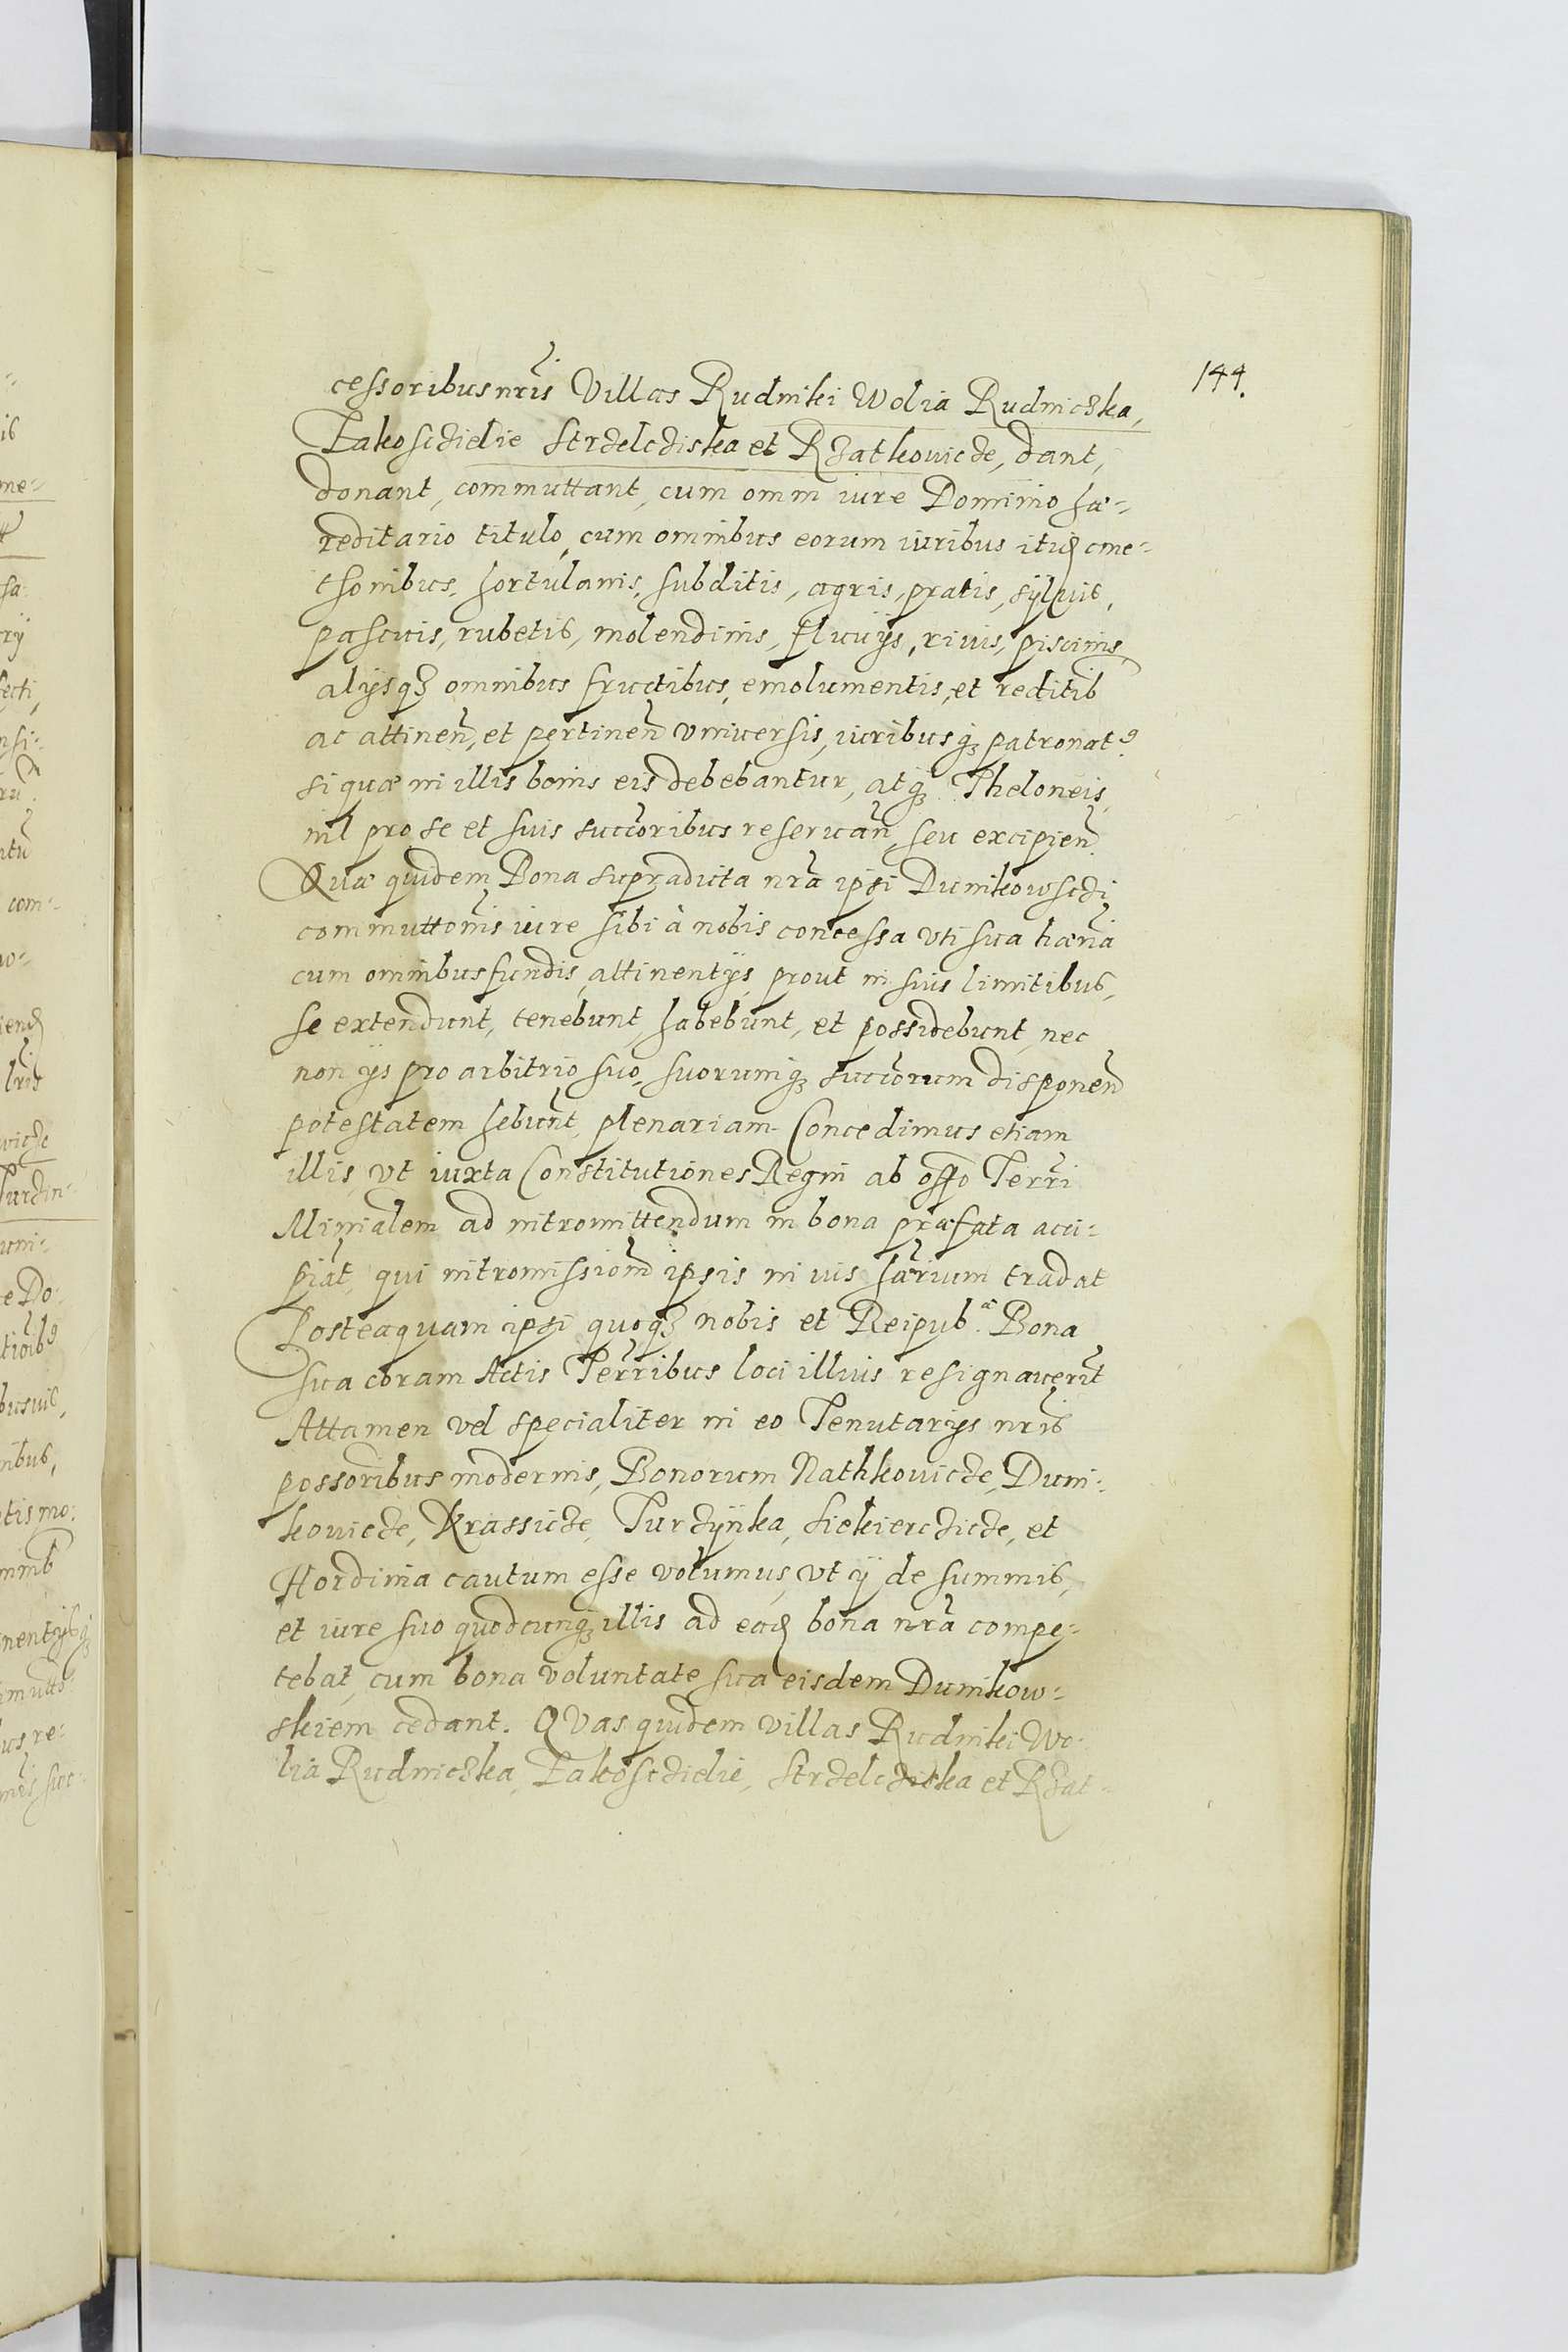 144.
cessoribus nr̃is Villas Rudniki Wolia Rudniczka,
Zakosczielie Strzelcziska et Rzatkovicze, dant,
donant, commuttant, cum omni iure Dominio hæ-
reditario titulo, cum omnibus eorum iuribus itidem cme-
thonibus, hortulanis, subditis, agris, pratis, sylvis,
pascuis, rubetis, molendinis, fluvijs, rivis, piscinis,
alijsq3 omnibus fructibus, emolumentis, et reditib
ac attinen̄, et pertinen̄ vniversis, iuribusq3 patronat9
si quæ in illis bonis eis debebantur, atq3 Theloneis,
nil pro se et suis succõribus reservan̄, seu excipien̄.
Quæ quidem Bona supradicta nr̃a ipsi Dunikowsczi
commuttõnis iure sibi à nobis concessa vti sua hæria
cum omnibus fundis, attinentijs, prout in suis limitibus,
se extendunt, tenebunt, habebunt, et possidebunt, nec
non ijs pro arbitrio suo, suorumq3 succõrum disponen̄
potestatem hebunt, plenariam. Concedimus etiam
illis, vt iuxta Constitutiones Regni ab offo Terri
Minialem ad intromittendum in bona præfata acci-
piat, qui intromissionem ipsis in vis hærium tradat
Posteaquam ipsi quoq3 nobis et Reipub.æ Bona
sua coram Actis Terribus loci illius resignaverit
Attamen vel specialiter in eo Tenutarijs nr̃is
possoribus modernis, Bonorum Nathkovicze, Duni-
kovicze, Krassicze, Turczynka, Siekierczicze, et
Hordinia cautum esse volumus, vt ij de summis,
et iure suo quodcunq3 illis ad ead bona nr̃a compe-
tebat, cum bona voluntate sua eisdem Dunikow-
skiem cedant. QVas quidem villas Rudniki Wo-
lia Rudniczka, Zakosczielie, Strzelcziska et Rzat-